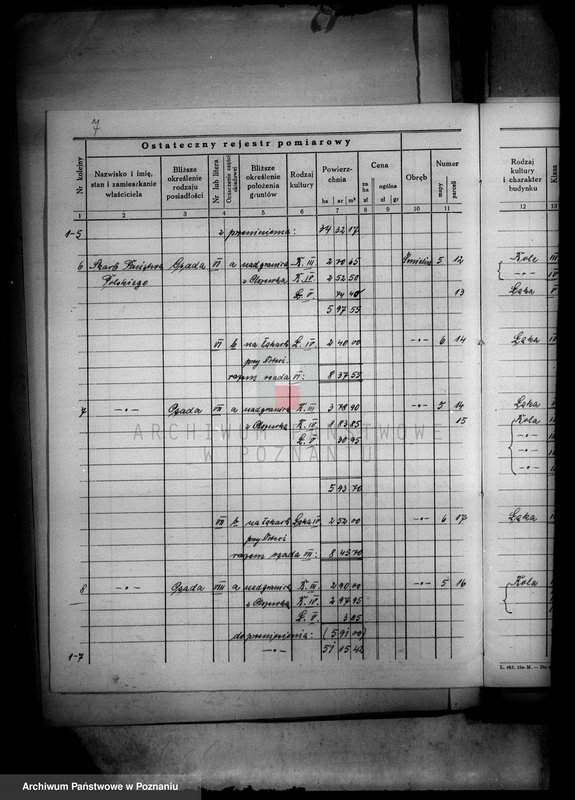 7
Ostateczny rejestr pomiarowy
Nr kolejny
Nazwisko i imię, stan i zamieszkanie właściciela
Bliższe określenie rodzaju posiadłości
Nr lub litera
Oznaczenie części składowej
Bliższe określenie położenia gruntów
Rodzaj kultury
Powierzchnia
ha ar m²
Cena
za ha zł
ogólna zł gr
Obręb
Numer
mapy parceli
Rodzaj kultury i charakter budynku
Klasa
1 2 3 4 5 6 7 8 9 10 11 12 13
1-5 z przeniesienia: 34 32 17
6 Skarb Państwa Osada VI a nad granicą R. III 2 70 65 5 12 Rola III
Polskiego R. IV 2 52 50 -"- IV
Ł. V 74 40 13 Łąka V
5 97 55
VI b na łąkach Ł. IV 2 40 00 -"- 6 14 Łąka IV
razem osada VI: 8 37 55
7 -"- Osada VII a nad granicą R. III 3 78 90 -"- 5 14 Łąka
R. IV 1 83 85 15 Rola
Ł. V 30 95 -"-
-"-
-"-
5 93 70
VII b na łąkach Łąka IV 2 52 00 -"- 6 17 Łąka
razem osada VII: 8 45 70
8 -"- Osada VIII a nad granicą R. III 2 90 00 -"- 5 16 Rola
R. IV 2 97 95
Ł. V 3 05
do przeniesienia: (5 91 00)
1-7 -"- 51 15 42
L. skł. 12a-M. — Do
ARCHIWUM PAŃSTWOWE
W POZNANIU
Archiwum Państwowe w Poznaniu